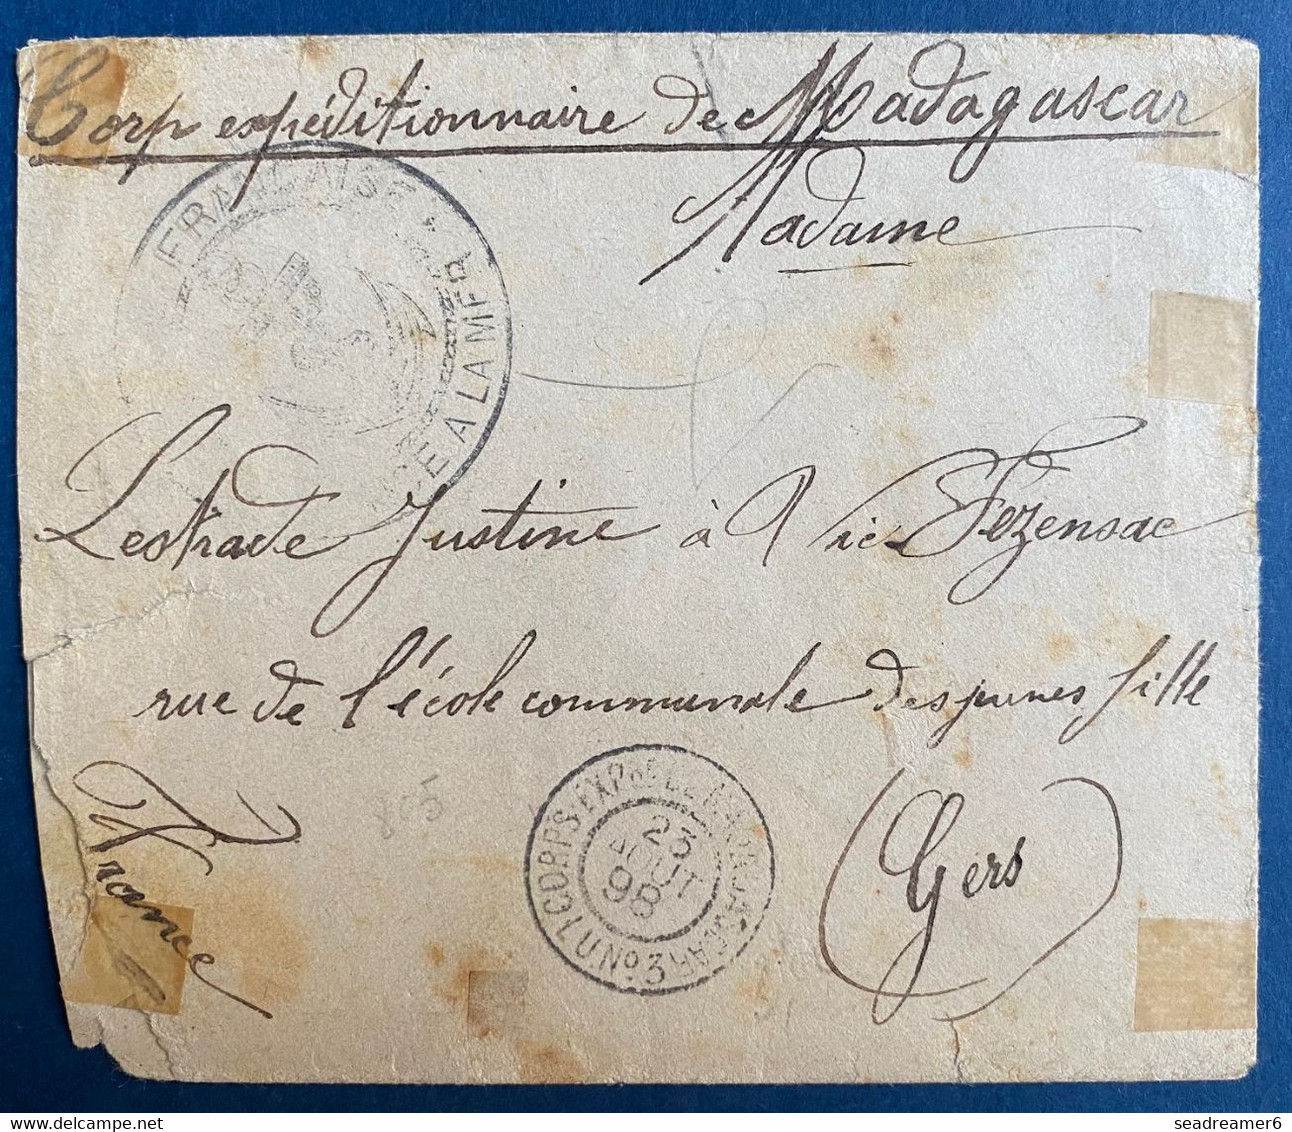 Corp expéditionnaire de Madagascar
Madame
FRANCAISE
A LA MER
Lestrade Justine à Vic Fezensac
rue de l'école communale des jeunes fille
805
France
(Gers)
CORPS EXPRE DE MADAGASCAR No 3
23
AOUT
98
seadreamer6